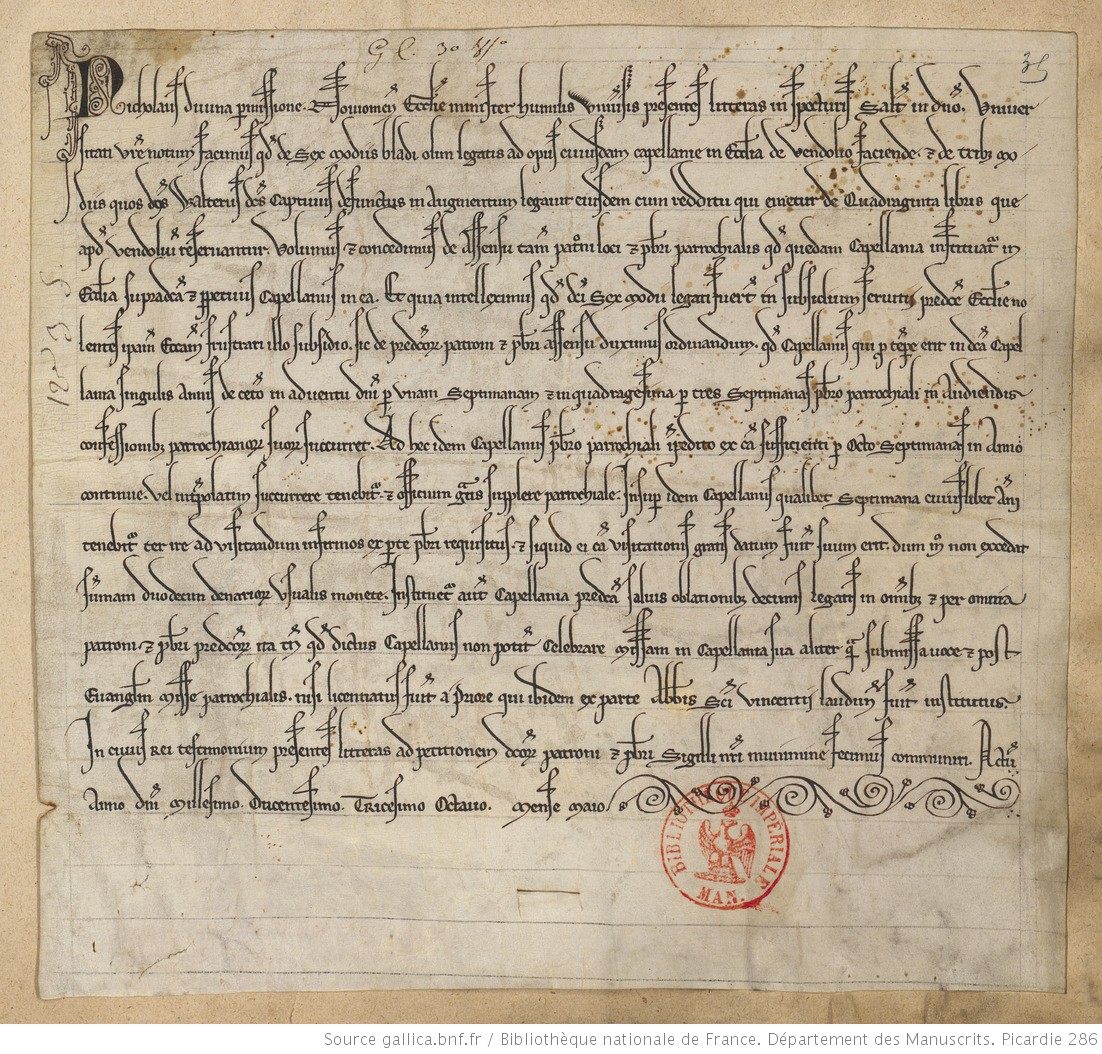 G C. 30
35
Nicholaus divina permissione. Noviomens Ecclie minister humilis Univsis presentes litteras inspecturis Saltm in dno. Univer
sitati vre notum facimus qd de Sex modiis bladi olim legatis ad opus cuiusdam capellanie in Ecclia de Vendolio faciende. & de tribz mo
diis quos dns Walterus dcs Captivus defunctus in augmentum legavit eiusdem cum redditu qui emetur de Quadraginta libris que
apd Vendoliu reservantur. Volumus & concedimus de assensu tam patni loci & pbri parrochialis qd quedam Capellania instituatr in
Ecclia supradca & ppetuus Capellanus in ea. Et quia intelleximus qd dci Sex modii legati fuert in subsidium servitii predce Ecclie no
lentes ipam Eccam frustrari illo subsidio. sic de predcor patroni & pbri assensu duximus ordinandum. qd Capellanus qui p tepe erit in dca Capel
lania singulis Annis de ceto in adventu dni p unam Septimanam & in quadragesima p tres Septimanas pbro parrochiali in Audiendis
confessionibz parrochianor suor succurret. Ad hec idem Capellanus pbro parrochiali ipedito ex ca sufficienti p Octo Septimanas in Anno
continue. vel intpolatim succurrere tenebitr. & officium gratis supplere parrochiale. Insup idem Capellanus qualibet Septimana cuiuslibet Ani
tenebitr ter ire ad visitandum infirmos ex pte pbri requisitus. & siquid ei ca visitationis gratis datum fuit suum erit. dum m non excedat
sumam duodecim denarior usualis monete. Instituetr aut Capellania predca salvis oblationibz decimis legatis in omibz & per omnia
patroni. & pbri predcor ita tn qd dictus Capellanus non potit Celebrare Missam in Capellania sua aliter qm submissa voce & post
Evanglm Misse parrochialis. nisi licentiatus fuit a Priore qui ibidem ex parte Abbis Sci Vincentii laudun fuit institutus.
In cuius Rei testimonium presentes litteras ad petitionem dcor patroni & pbri Sigilli nri munimine fecimus communiri. Actu
Anno dni Millesimo. Ducentesimo. Tricesimo Octavo. Mense Maio.
BIBLIOTHEQUE IMPÉRIALE
MAN.
Source gallica.bnf.fr / Bibliothèque nationale de France. Département des Manuscrits. Picardie 286